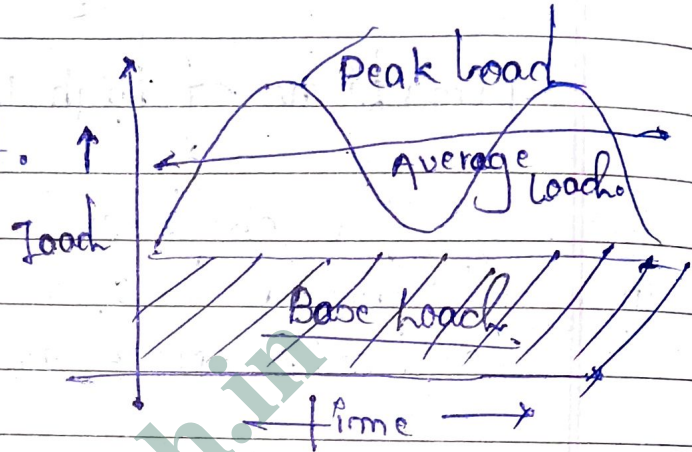 Peak Load
Average
Load.
Load
Base Load
Time
h.in